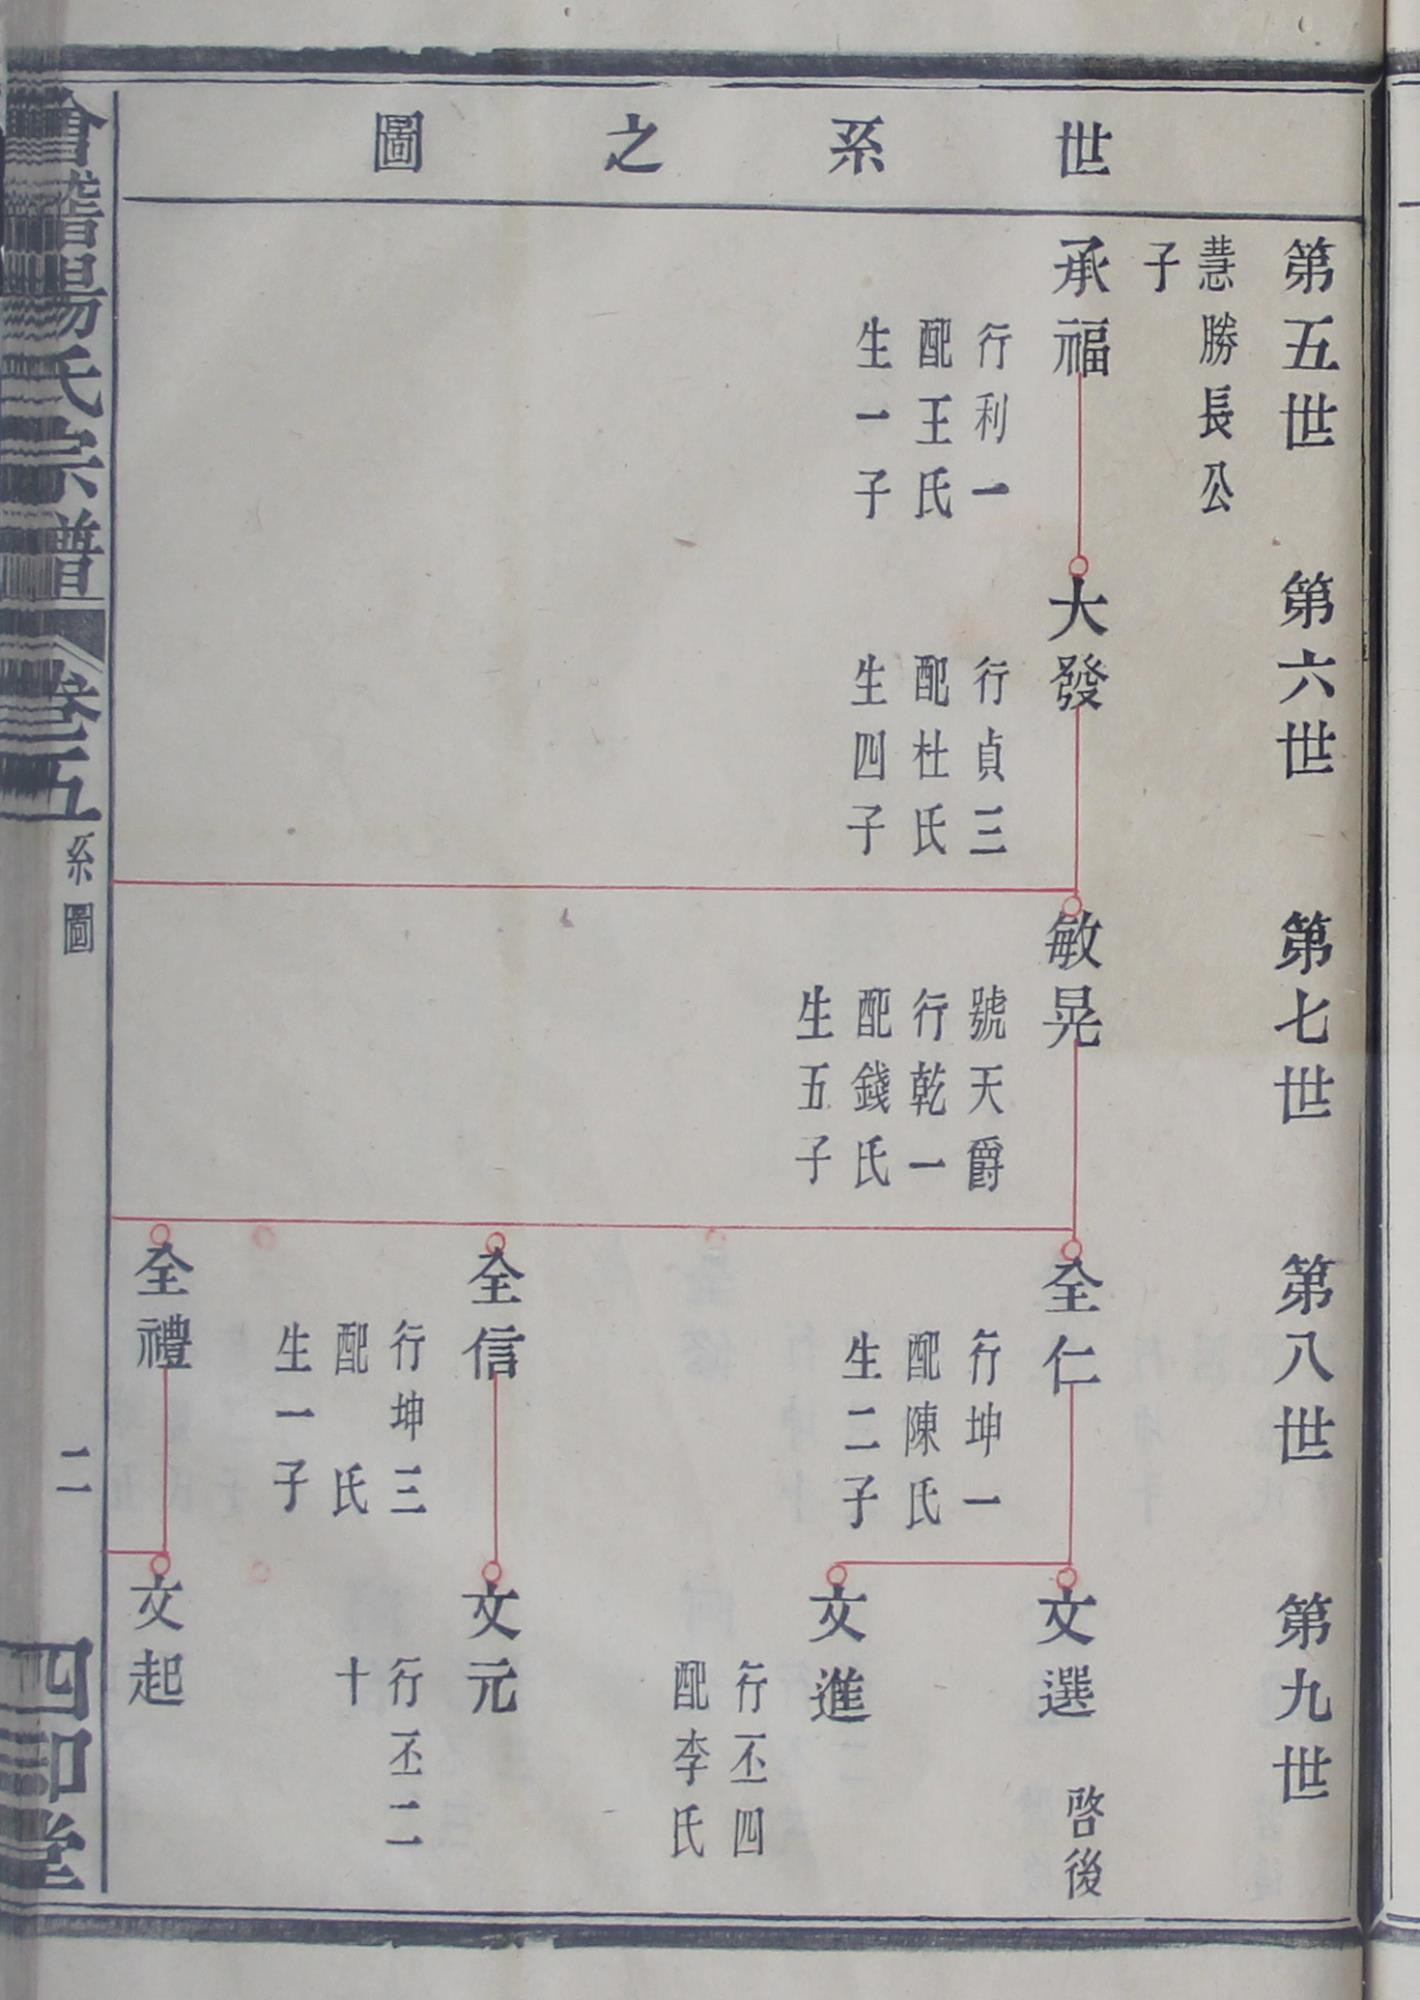 世系之圖
第五世
慧勝長公
子
承福
行利一
配王氏
生一子
第六世
大發
行貞三
配杜氏
生四子
第七世
敏晃
號天爵
行乾一
配錢氏
生五子
第八世
全仁
行坤一
配陳氏
生二子
全信
行坤三
配 氏
生一子
全禮
第九世
文選 啓後
文進
行丕四
配李氏
文元
行丕二
十
文起
會稽楊氏宗譜 卷五 系圖 二 四知堂